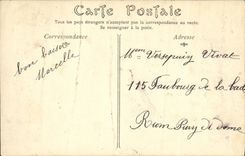 Carte Postale
Tous les pays étrangers n'acceptent pas la correspondance au verso.
Se renseigner à la poste.
Correspondance
Adresse
bon baiser
Marcelle
Mme Verspuiy Vivat
115 Faubourg de la bad
Riom Puy de dome